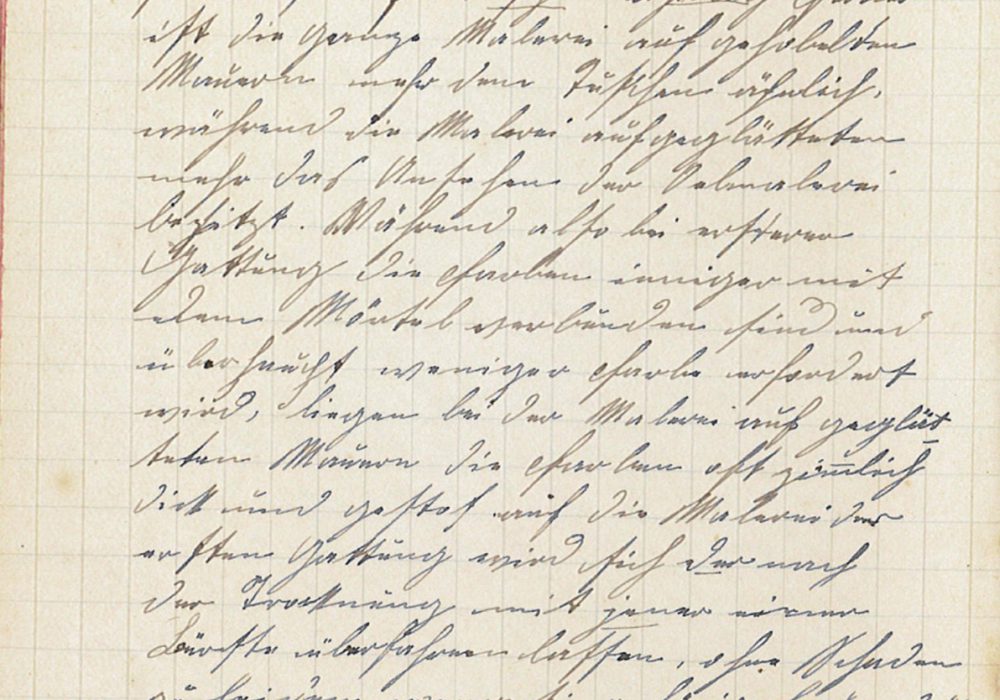 ist die ganze Malerei auf gehobelten
Mauern mehr dem Tuschen ähnlich,
während die Malerei auf geglätteten
mehr das Ansehen der Oelmalerei
besitzt. Während also bei ersterer
Gattung die Farben inniger mit
dem Mörtel verbunden sind und
überhaupt weniger Farbe erfordert
wird, liegen bei der Malerei auf geglät
teten Mauern die Farben oft ziemlich
dick und auf die Malerei der
ersten Gattung wird sich der nach
der Trocknung mit jener einer
Bürste überfahren lassen, ohne Schaden